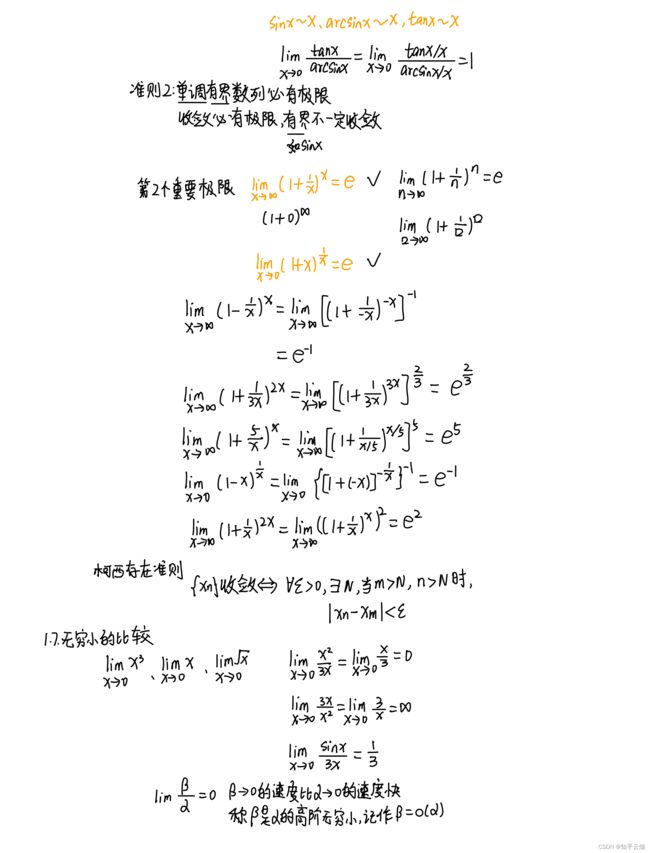 sinx~x、arcsinx~x,tanx~x
lim x→0 tanx/arcsinx = lim x→0 (tanx/x)/(arcsinx/x) = 1
准则2:单调有界数列必有极限
收敛必有极限,有界不一定收敛
如sinx
第2个重要极限 lim x→∞ (1+1/x)^x = e ✓ lim n→∞ (1+1/n)^n = e
(1+0)^∞ lim □→∞ (1+1/□)^□
lim x→0 (1+x)^(1/x) = e ✓
lim x→∞ (1-1/x)^x = lim x→∞ [(1+1/-x)^-x]^-1
= e^-1
lim x→∞ (1+1/3x)^2x = lim x→∞ [(1+1/3x)^3x]^(2/3) = e^(2/3)
lim x→∞ (1+5/x)^x = lim x→∞ [(1+1/(x/5))^(x/5)]^5 = e^5
lim x→0 (1-x)^(1/x) = lim x→0 {[1+(-x)]^(-1/x)}^-1 = e^-1
lim x→∞ (1+1/x)^2x = lim x→∞ ((1+1/x)^x)^2 = e^2
柯西存在准则
{xn}收敛⇔ ∀ε>0,∃N,当m>N, n>N时,
|xn-xm|<ε
1.7.无穷小的比较
lim x→0 x^3、lim x→0 x、lim x→0 √x lim x→0 x^2/3x = lim x→0 x/3 = 0
lim x→0 3x/x^2 = lim x→0 3/x = ∞
lim x→0 sinx/3x = 1/3
lim β/α = 0 β→0的速度比α→0的速度快
称β是α的高阶无穷小,记作β=o(α)
CSDN @知乎云烟